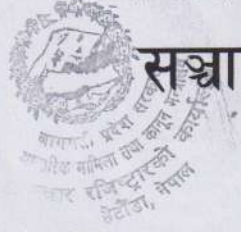 सञ्चा
बागमती प्रदेश सरकार
आन्तरिक मामिला तथा कानून
सञ्चार रजिष्ट्रारको कार्यालय
हेटौंडा, नेपाल